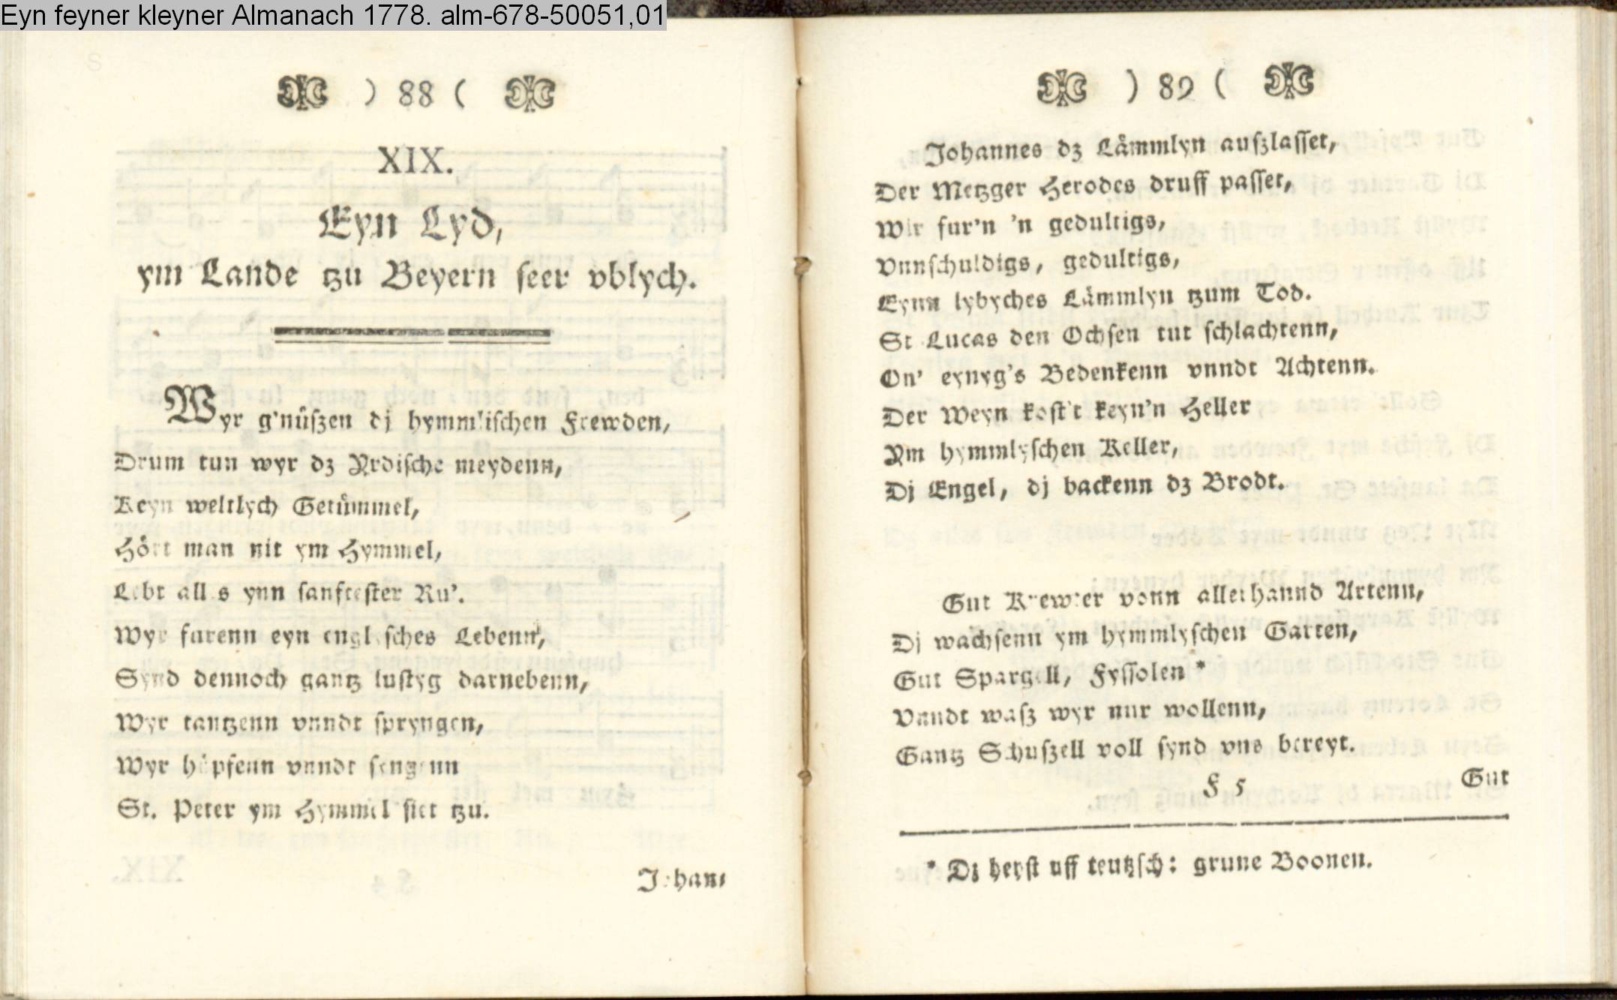 Eyn feyner kleyner Almanach 1778. alm-678-50051,01
) 88 (
XIX.
Eyn Lyd,
ym Lande tzu Beyern seer vblych.
Wyr g'nůszen dj hymmlischen Frewden,
Drum tun wyr dz Yrdische meydenn,
Keyn weltlych Getůmmel,
Hört man nit ym Hymmel,
Lebt alles ynn sanftester Ru'.
Wyr farenn eyn englisches Lebenn,
Synd dennoch gantz lustyg darnebenn,
Wyr tantzenn vnndt spryngen,
Wyr hüpfenn vnndt sengenn
St. Peter ym Hymmel siet tzu.
Johan-
) 89 (
Johannes dz Låmmlyn auszlasset,
Der Metzger Herodes druff passet,
Wir fur'n 'n gedultigs,
Vnnschuldigs, gedultigs,
Eynn lybyches Låmmlyn tzum Tod.
St Lucas den Ochsen tut schlachtenn,
On' eynyg's Bedenkenn vnndt Achtenn.
Der Weyn kost't keyn'n Heller
Ym hymmlyschen Keller,
Dj Engel, dj backenn dz Brodt.
Gut Krewter vonn allerhannd Artenn,
Dj wachsenn ym hymmlyschen Garten,
Gut Spargell, Fyssolen *
Vnndt wasz wyr nur wollenn,
Gantz Schuszell voll synd vns bereyt.
F 5
Gut
* Di heyst uff teutzsch: grune Boonen.